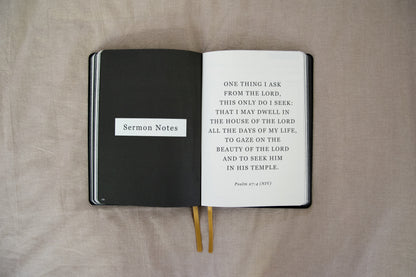 Sermon Notes
ONE THING I ASK
FROM THE LORD,
THIS ONLY DO I SEEK:
THAT I MAY DWELL IN
THE HOUSE OF THE LORD
ALL THE DAYS OF MY LIFE,
TO GAZE ON THE
BEAUTY OF THE LORD
AND TO SEEK HIM
IN HIS TEMPLE.
Psalm 27:4 (NIV)